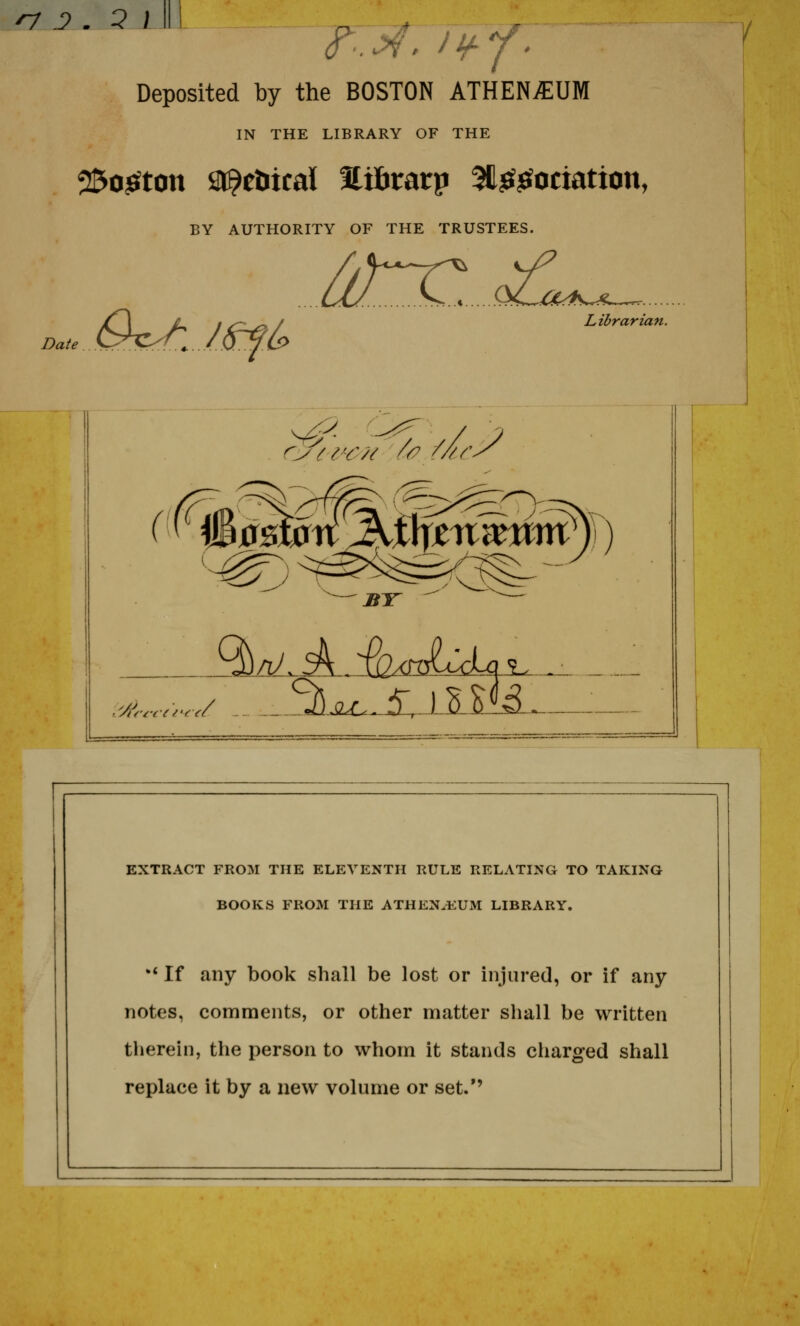 8.A.147.
Deposited by the BOSTON ATHENÆUM
IN THE LIBRARY OF THE
Boston Medical Library Association,
BY AUTHORITY OF THE TRUSTEES.
W. C. Lane
Librarian.
Date Oct. 1896
Given to the
Boston Athenæum
BY
A.
Received Dec. 5, 1883.
EXTRACT FROM THE ELEVENTH RULE RELATING TO TAKING
BOOKS FROM THE ATHENÆUM LIBRARY.
“ If any book shall be lost or injured, or if any
notes, comments, or other matter shall be written
therein, the person to whom it stands charged shall
replace it by a new volume or set.”